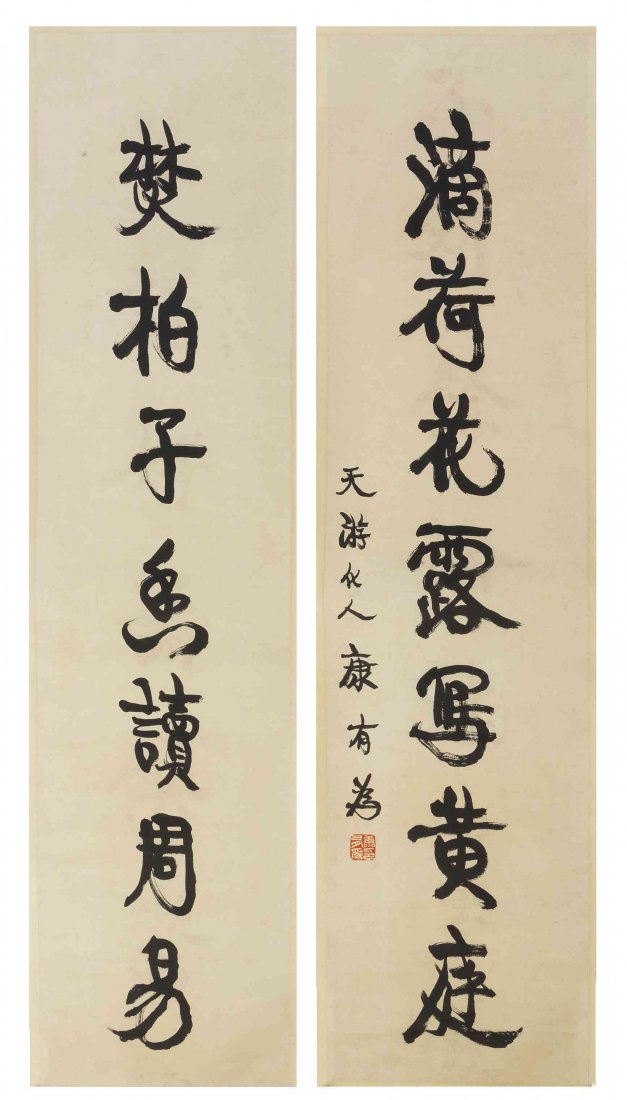 滴荷花露写黄庭
天游化人康有為
焚柏子香讀周易